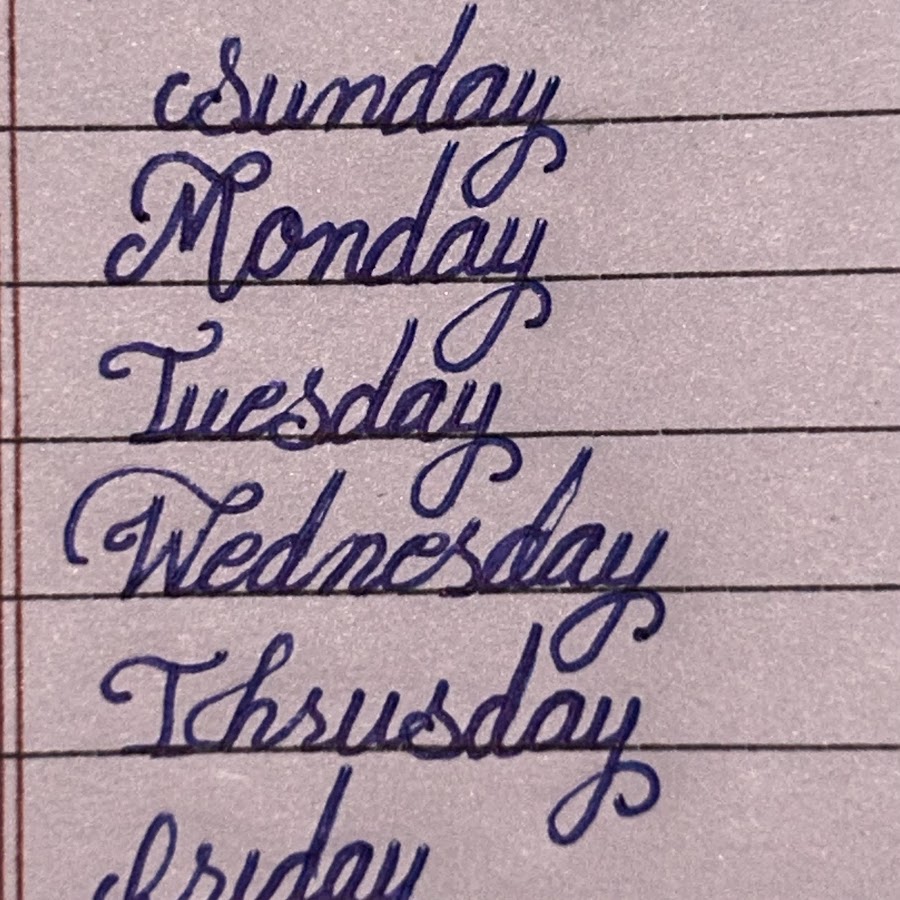 Sunday
Monday
Tuesday
Wednesday
Thrusday
Friday